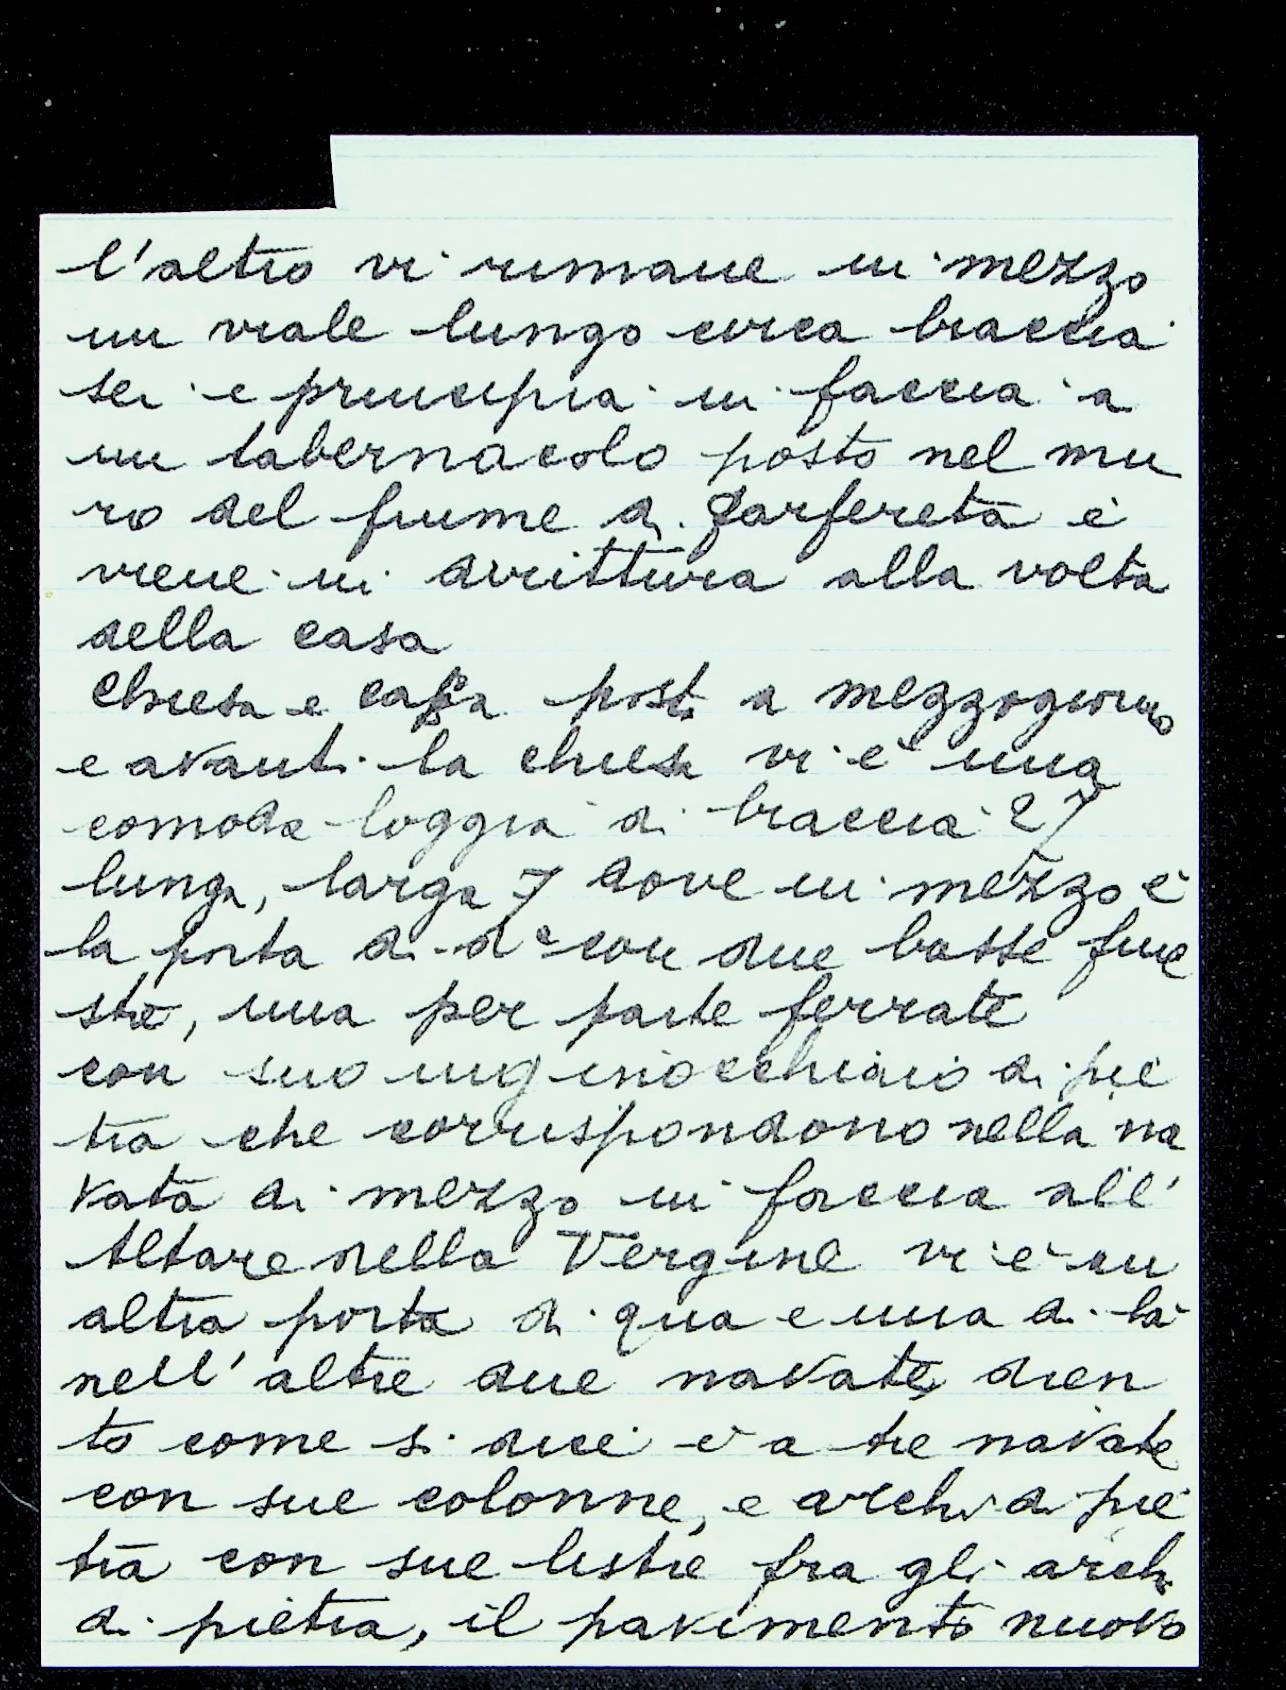 l'altro vi rimane in mezzo
un viale lungo circa braccia
sei e principia in faccia a
un tabernacolo posto nel mu
ro del fiume di Farfereta e
viene in dirittura alla volta
della casa
Chiesa e casa poste a mezzogiorno
e avanti la chiesa vi è una
comoda loggia di braccia 27
lunga, larga 7 dove in mezzo è
la porta di da con due basse fine
stre, una per parte ferrate
con suo inginocchiaio di pie
tra che corrispondono nella na
vata di mezzo in faccia all'
Altare della Vergine vi è un
altra porta di qua e una di là
nell'altre due navate, dren
to come si dice è a tre navate
con sue colonne, e archi di pie
tra con sue lestre fra gli archi
di pietra, il pavimento nuovo